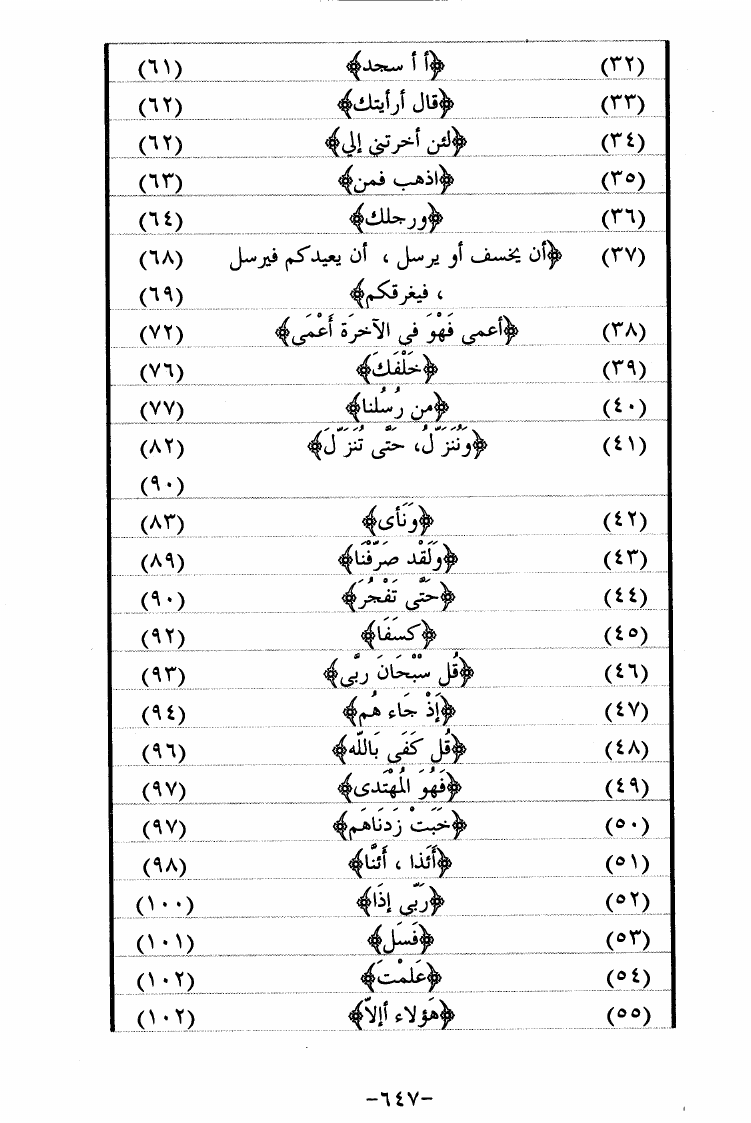 (٣٢) ﴿أ أ سجد﴾ (٦١)
(٣٣) ﴿قال أرأيتك﴾ (٦٢)
(٣٤) ﴿لئن أخرتني إلي﴾ (٦٢)
(٣٥) ﴿اذهب فمن﴾ (٦٣)
(٣٦) ﴿ورجلك﴾ (٦٤)
(٣٧) ﴿أن يخسف أو يرسل ، أن يعيدكم فيرسل (٦٨)
، فيغرقكم﴾ (٦٩)
(٣٨) ﴿أعمى فَهْوَ في الآخرَة أَعْمَى﴾ (٧٢)
(٣٩) ﴿خَلْفَكَ﴾ (٧٦)
(٤٠) ﴿من رُسُلنا﴾ (٧٧)
(٤١) ﴿وَنُنَزّلُ، حَتَّى تُنَزّلَ﴾ (٨٢)
(٩٠)
(٤٢) ﴿وَنَأى﴾ (٨٣)
(٤٣) ﴿وَلَقْد صَرَّفْنَا﴾ (٨٩)
(٤٤) ﴿حَتَّى تَفْجُرَ﴾ (٩٠)
(٤٥) ﴿كسَفَا﴾ (٩٢)
(٤٦) ﴿قُل سْبْحَانَ ربَّى﴾ (٩٣)
(٤٧) ﴿إَذْ جَاء هُم﴾ (٩٤)
(٤٨) ﴿قُل كَفَى بَاللّه﴾ (٩٦)
(٤٩) ﴿فَهُوَ الُمهْتَدى﴾ (٩٧)
(٥٠) ﴿خَبَتْ زَدنَاهَم﴾ (٩٧)
(٥١) ﴿أَئَذا ، أَئنَّا﴾ (٩٨)
(٥٢) ﴿رَبّى إذَا﴾ (١٠٠)
(٥٣) ﴿فَسَل﴾ (١٠١)
(٥٤) ﴿عَلمْتَ﴾ (١٠٢)
(٥٥) ﴿هَؤلاء أإلاّ﴾ (١٠٢)
-٦٤٧-